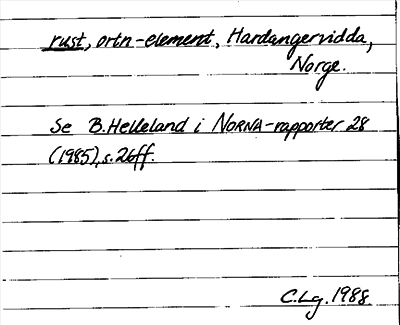 rust, ortn-element, Hardangervidda,
Norge.
Se B. Helleland i NORNA-rapporter 28
(1985), s. 26ff.
C.Lg. 1988.